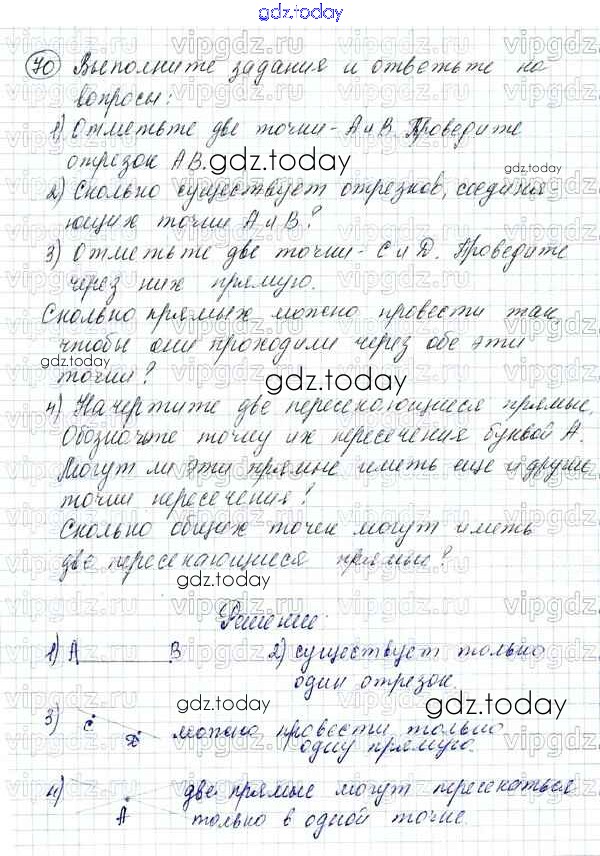 gdz.today
70 Выполните задания и ответьте на
вопросы:
1) Отметьте две точки - А и В. Проведите
отрезок АВ.
2) Сколько существует отрезков, соединя
ющих точки А и В?
3) Отметьте две точки - С и D. Проведите
через них прямую.
Сколько прямых можно провести так
чтобы они проходили через обе эти
точки?
4) Начертите две пересекающиеся прямые.
Обозначьте точку их пересечения буквой А.
Могут ли эти прямые иметь еще и другие
точки пересечения?
Сколько общих точек могут иметь
две пересекающиеся прямые?
Решение:
1) А В 2) существует только
один отрезок.
3) С D можно провести только
одну прямую.
4) А две прямые могут пересекаться
только в одной точке.